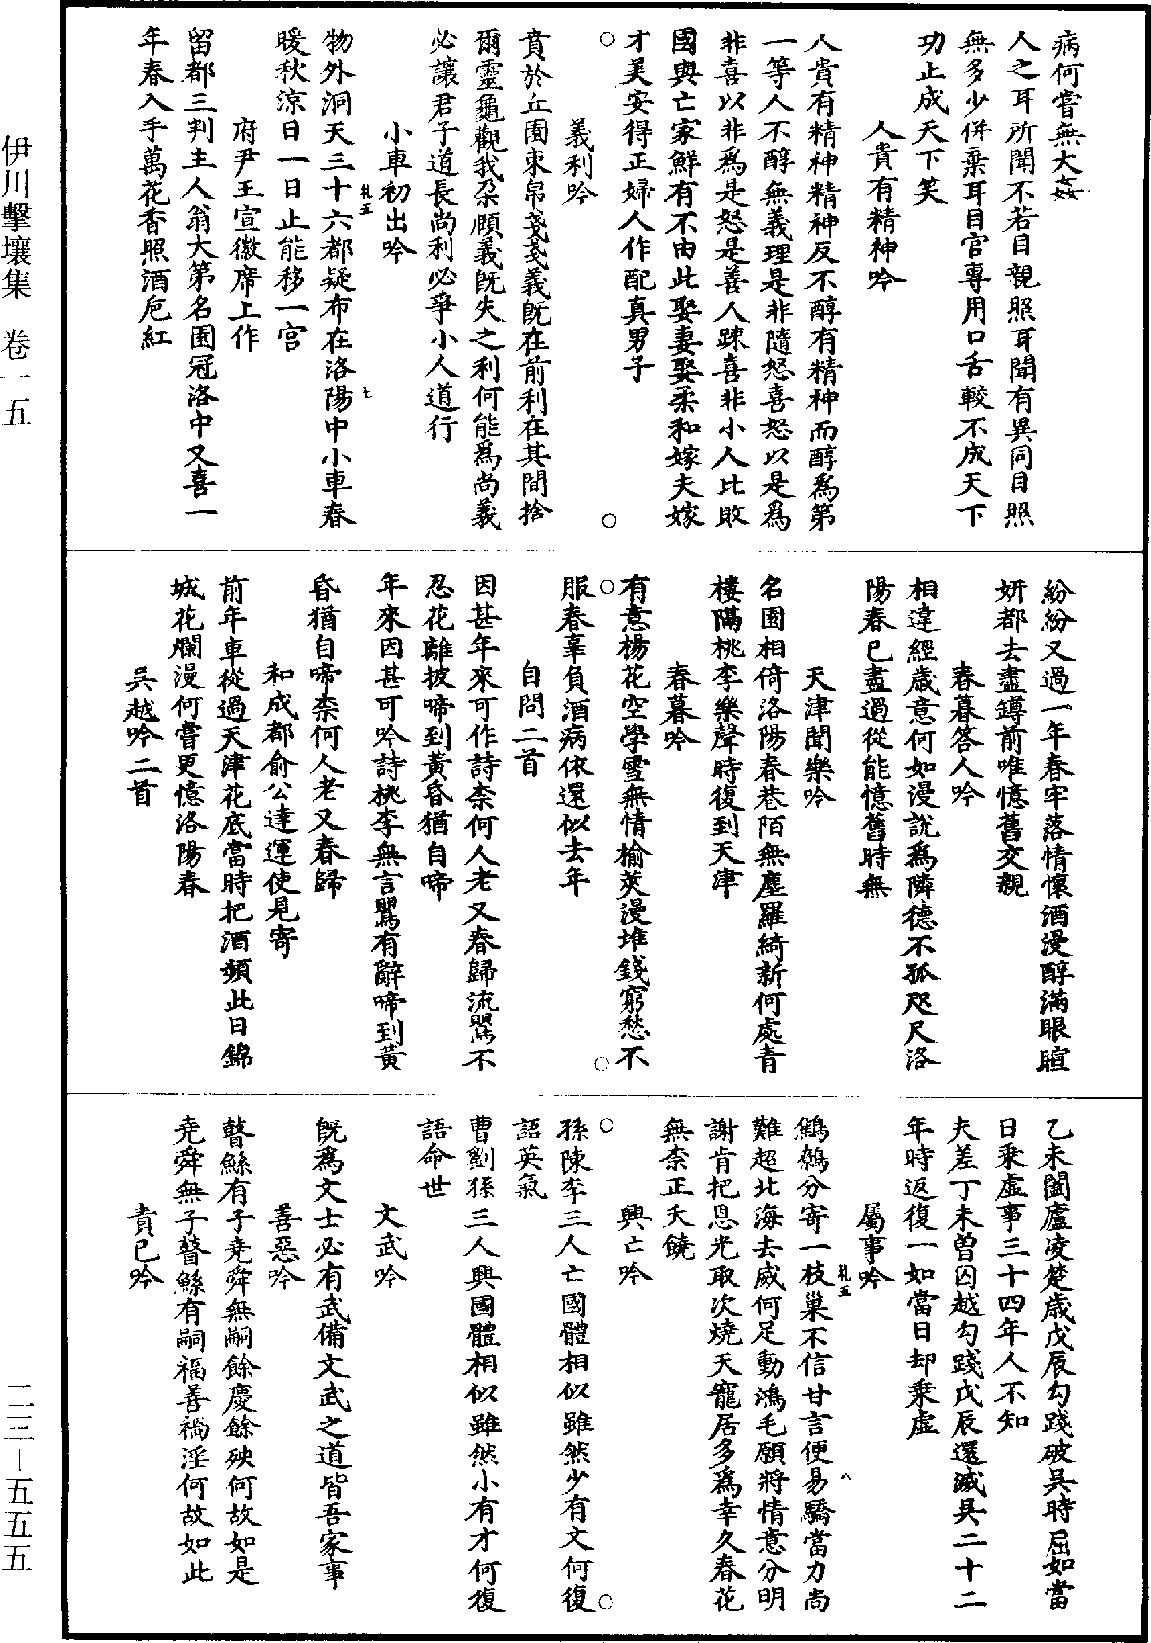 伊川擊壤集　卷一五
二三－五五五
病何嘗無大姦
人之耳所聞不若目親照耳聞有異同目照
無多少併棄耳目官專用口舌較不成天下
功止成天下笑
人貴有精神吟
人貴有精神精神反不醇有精神而醇為第
一等人不醇無義理是非隨怒喜怒以是為
非喜以非為是怒是善人踈喜非小人比敗
國興亡家鮮有不由此娶妻娶柔和嫁夫嫁
才美安得正婦人作配真男子
○　○
義利吟
賁於丘園束帛戔戔義既在前利在其間捨
爾靈龜觀我朶頤義既失之利何能為尚義
必讓君子道長尚利必爭小人道行
小車初出吟
札五　七
物外洞天三十六都疑布在洛陽中小車春
暖秋涼日一日止能移一宮
府尹王宣徽席上作
留都三判主人翁大第名園冠洛中又喜一
年春入手萬花香照酒卮紅
紛紛又過一年春牢落情懷酒漫醇滿眼暄
妍都去盡罇前唯憶舊交親
春暮答人吟
相違經歲意何如漫說為隣德不孤咫尺洛
陽春已盡過從能憶舊時無
天津聞樂吟
名園相倚洛陽春巷陌無塵羅綺新何處青
樓隔桃李樂聲時復到天津
春暮吟
有意楊花空學雪無情榆莢漫堆錢窮愁不
○　○
服春辜負酒病依還似去年
自問二首
因甚年來可作詩柰何人老又春歸流鸎不
忍花離披啼到黃昏猶自啼
年來因甚可吟詩桃李無言鸎有辭啼到黃
昏猶自啼柰何人老又春歸
和成都俞公達運使見寄
前年車從過天津花底當時把酒頻此日錦
城花爛漫何嘗更憶洛陽春
吳越吟二首
乙未闔廬凌楚歲戊辰勾踐破吳時屈如當
日乘虛事三十四年人不知
夫差丁未曾囚越勾踐戊辰還滅吳二十二
年時返復一如當日却乘虛
屬事吟
札五　八
鷦鷯分寄一枝巢不信甘言便易驕當力尚
難超北海去威何足動鴻毛願將情意分明
謝肯把恩光取次燒天寵居多為幸久春花
無柰正夭饒
興亡吟
○　○
孫陳李三人亡國體相似雖然少有文何復
語英氣
曹劉孫三人興國體相似雖然小有才何復
語命世
文武吟
既為文士必有武備文武之道皆吾家事
善惡吟
瞽鯀有子堯舜無嗣餘慶餘殃何故如是
堯舜無子瞽鯀有嗣福善禍淫何故如此
責己吟